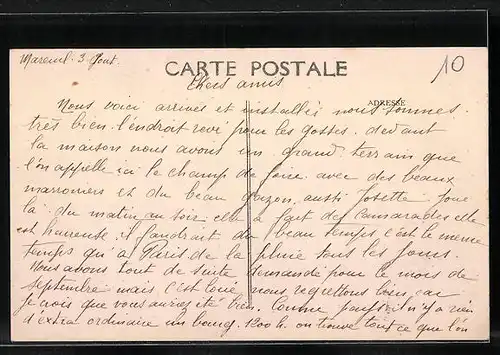 Mareuil. 3 Aout.
10
CARTE POSTALE
Chers amis
ADRESSE
Nous voici arrivés et installés nous sommes
très bien. l'endroit rêvé pour les gosses. devant
la maison nous avons un grand terrain que
l'on appelle ici le champ de foire avec des beaux
marroniers et du beau gazon, aussi Josette joue
là du matin au soir elle a fait des camarades elle
est heureuse. il faudrait du beau temps c'est le même
temps qu'à Paris de la pluie tous les jours.
Nous avons tout de suite demandé pour le mois de
Septembre mais c'est loué, nous regrettons bien car
je crois que vous auriez été bien. Comme pays il n'y a rien
d'extra ordinaire un bourg. 1200 h. on trouve tout ce que l'on